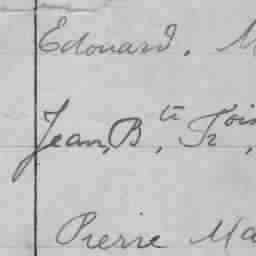 Edouard. M
Jean, Bte, Fr
Pierre Ma